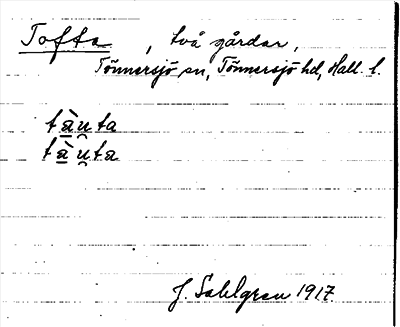 Tofta, två gårdar,
Tönnersjö sn, Tönnersjö hd, Hall. l.
tà̲u̯ta
tà̲u̯ta
J. Sahlgren 1917